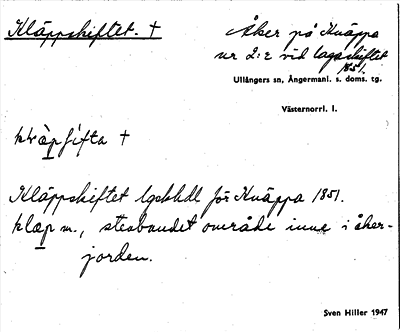 Kläppskiftet. †
Åker på Knäppa
nr 2:2 vid lagaskiftet
1851.
Ullångers sn, Ångermanl. s. doms. tg.
Västernorrl. l.
†
Kläppskiftet lgskhdl för Knäppa 1851.
klæp m., stenbundet område inne i åker-
jorden.
Sven Hiller 1947